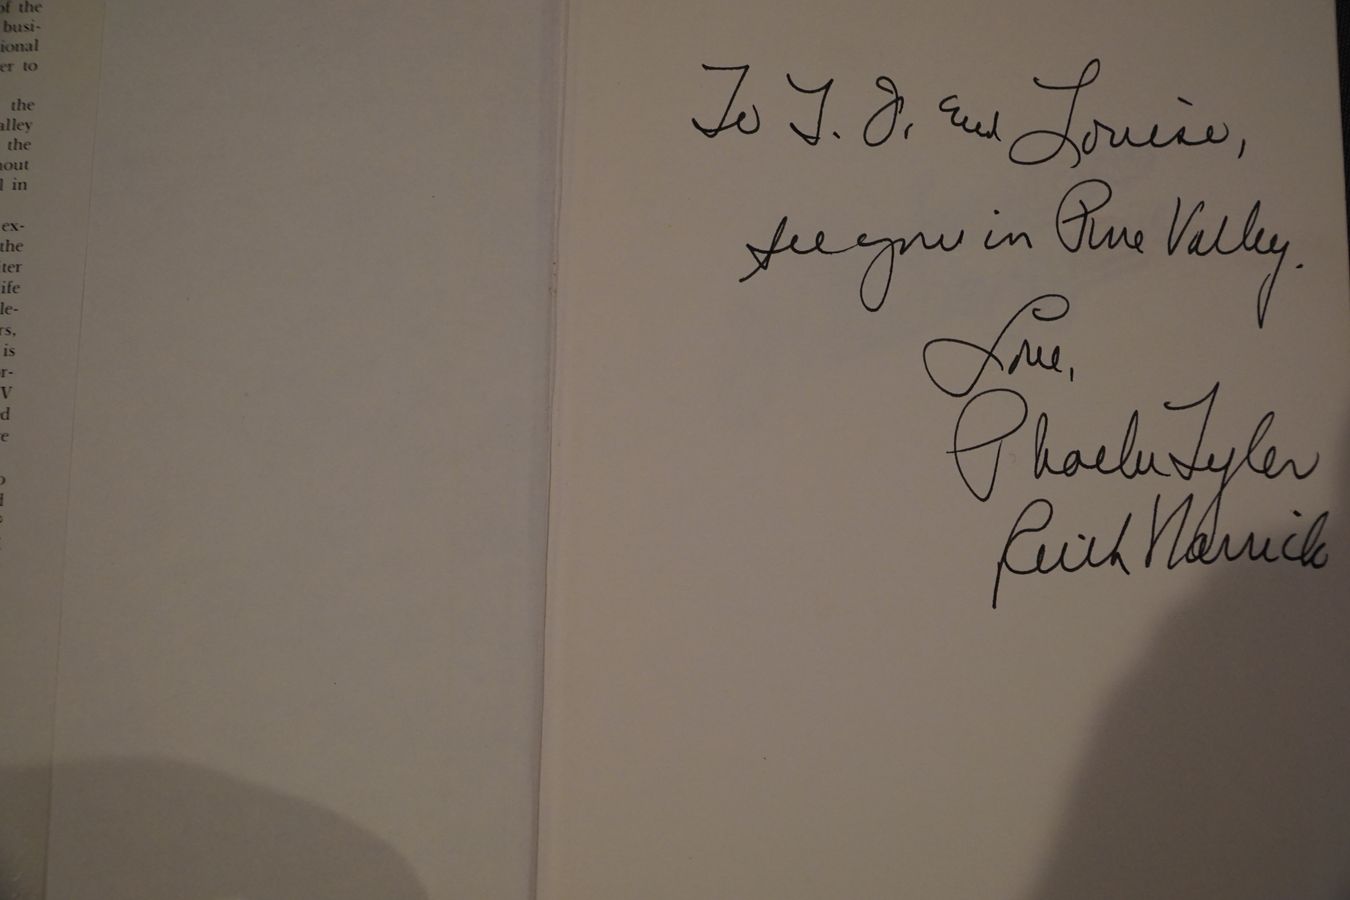 of the
busi-
ional
er to
the
alley
the
hout
l in
ex-
the
iter
ife
le-
rs,
is
r-
V
d
re
To T. J. and Louise,
see you in Pine Valley.
Love,
Phoebe Tyler
Ruth Warrick